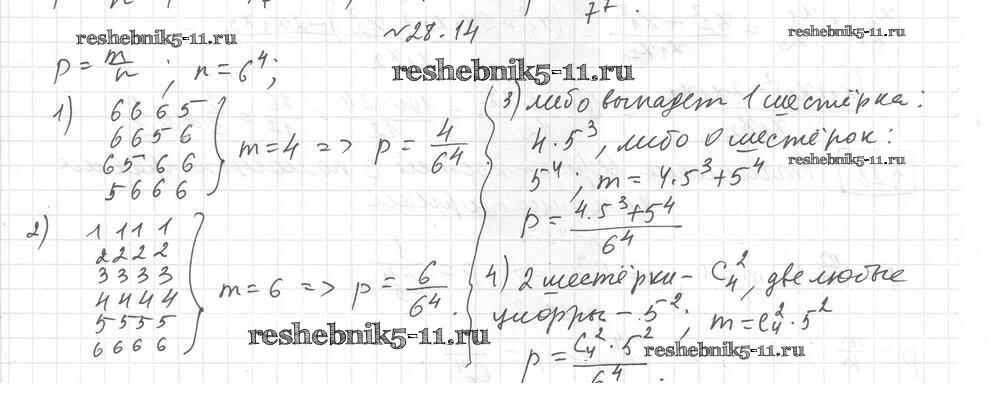 77.
№28.14
reshebnik5-11.ru
reshebnik5-11.ru
reshebnik5-11.ru
p = m/n ; n = 6⁴;
1) 6 6 6 5
6 6 5 6
6 5 6 6
5 6 6 6
m = 4 => p = 4/6⁴.
2) 1 1 1 1
2 2 2 2
3 3 3 3
4 4 4 4
5 5 5 5
6 6 6 6
m = 6 => p = 6/6⁴.
reshebnik5-11.ru
3) либо выпадет 1 шестёрка:
4·5³, либо 0 шестёрок:
reshebnik5-11.ru
5⁴; m = 4·5³+5⁴
p = (4·5³+5⁴)/6⁴
4) 2 шестёрки – C₄², две любые
цифры – 5²; m = C₄²·5²
p = (C₄²·5²)/6⁴.
reshebnik5-11.ru